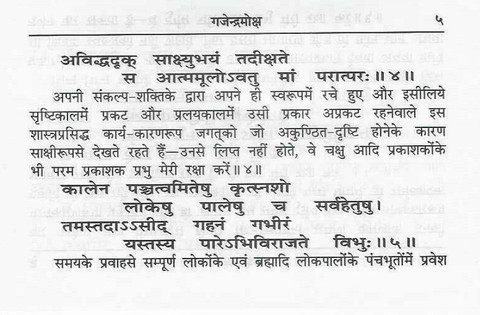 गजेन्द्रमोक्ष ५
अविद्धदृक् साक्ष्युभयं तदीक्षते
स आत्ममूलोऽवतु मां परात्परः॥४॥
अपनी संकल्प-शक्तिके द्वारा अपने ही स्वरूपमें रचे हुए और इसीलिये
सृष्टिकालमें प्रकट और प्रलयकालमें उसी प्रकार अप्रकट रहनेवाले इस
शास्त्रप्रसिद्ध कार्य-कारणरूप जगत्को जो अकुण्ठित-दृष्टि होनेके कारण
साक्षीरूपसे देखते रहते हैं—उनसे लिप्त नहीं होते, वे चक्षु आदि प्रकाशकोंके
भी परम प्रकाशक प्रभु मेरी रक्षा करें॥४॥
कालेन पञ्चत्वमितेषु कृत्स्नशो
लोकेषु पालेषु च सर्वहेतुषु।
तमस्तदाऽऽसीद् गहनं गभीरं
यस्तस्य पारेऽभिविराजते विभुः॥५॥
समयके प्रवाहसे सम्पूर्ण लोकोंके एवं ब्रह्मादि लोकपालोंके पंचभूतोंमें प्रवेश